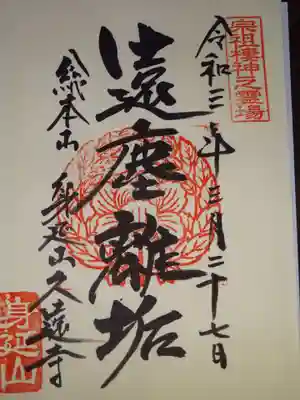 宗祖棲神之霊場
令和三年三月二十七日
遠塵離垢
総本山 身延山久遠寺
身延山